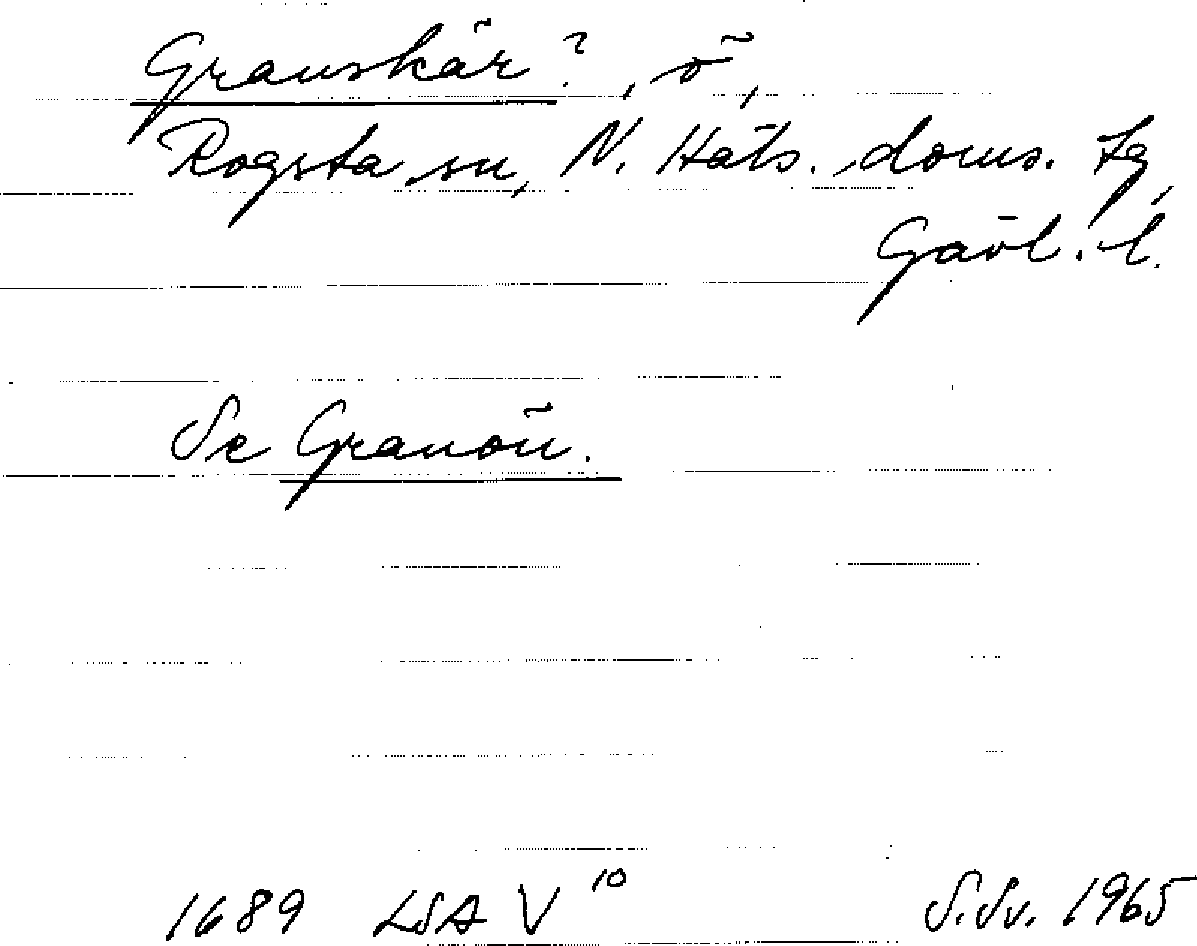 Granskär?, ö,
Rogsta sn, N. Häls. doms. tg,
Gävl. l.
Se Granön.
1689 LSA V 10 S.Sv. 1965